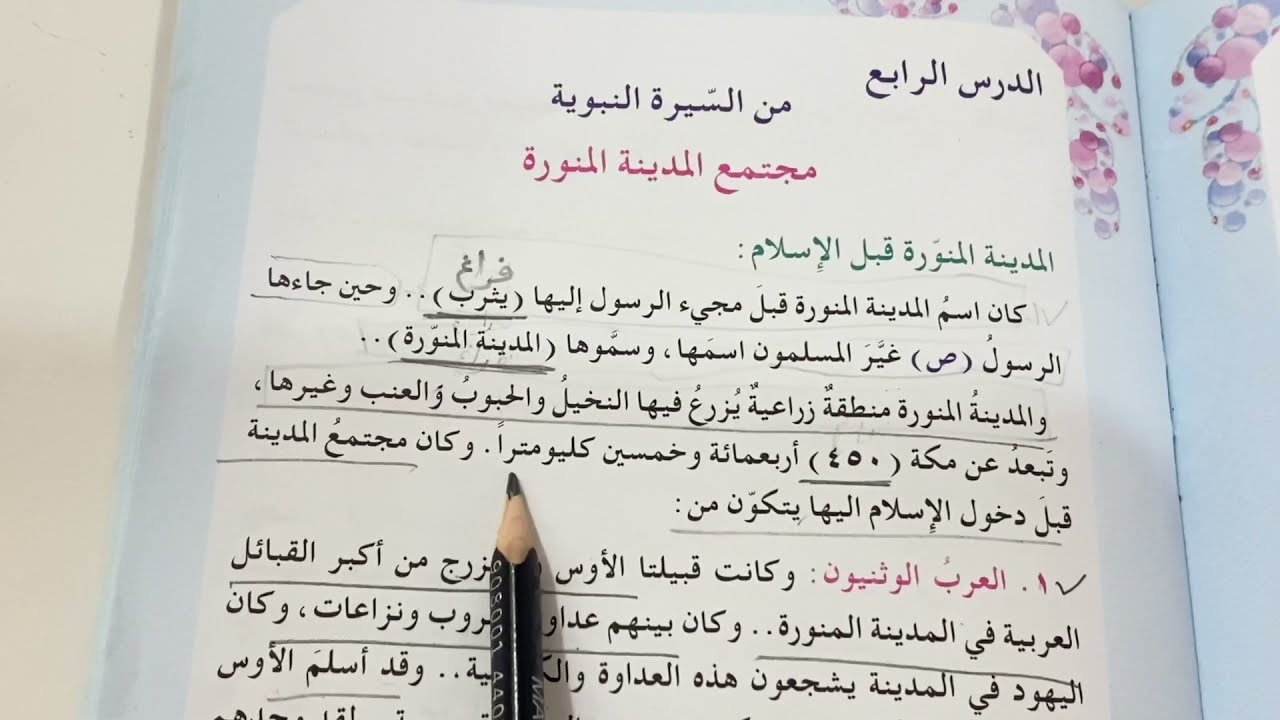 الدرس الرابع
من السّيرة النبوية
مجتمع المدينة المنورة
المدينة المنوّرة قبل الإسلام :
فراغ
كان اسمُ المدينة المنورة قبلَ مجيء الرسول إليها (يثرب) . . وحين جاءها
الرسولُ (ص) غيَّرَ المسلمون اسمَها، وسمَّوها (المدينة المنوّرة) . .
والمدينةُ المنورة منطقةٌ زراعيةٌ يُزرعُ فيها النخيلُ والحبوبُ والعنب وغيرها،
وتَبعدُ عن مكة (٤٥٠) أربعمائة وخمسين كليومتراً. وكان مجتمعُ المدينة
قبلَ دخول الإسلام اليها يتكوّن من:
١. العربُ الوثنيون: وكانت قبيلتا الأوس من أكبر القبائل
العربية في المدينة المنورة . . وكان بينهم ونزاعات، وكان
اليهود في المدينة يشجعون هذه العداوة . . وقد أسلمَ الأوس